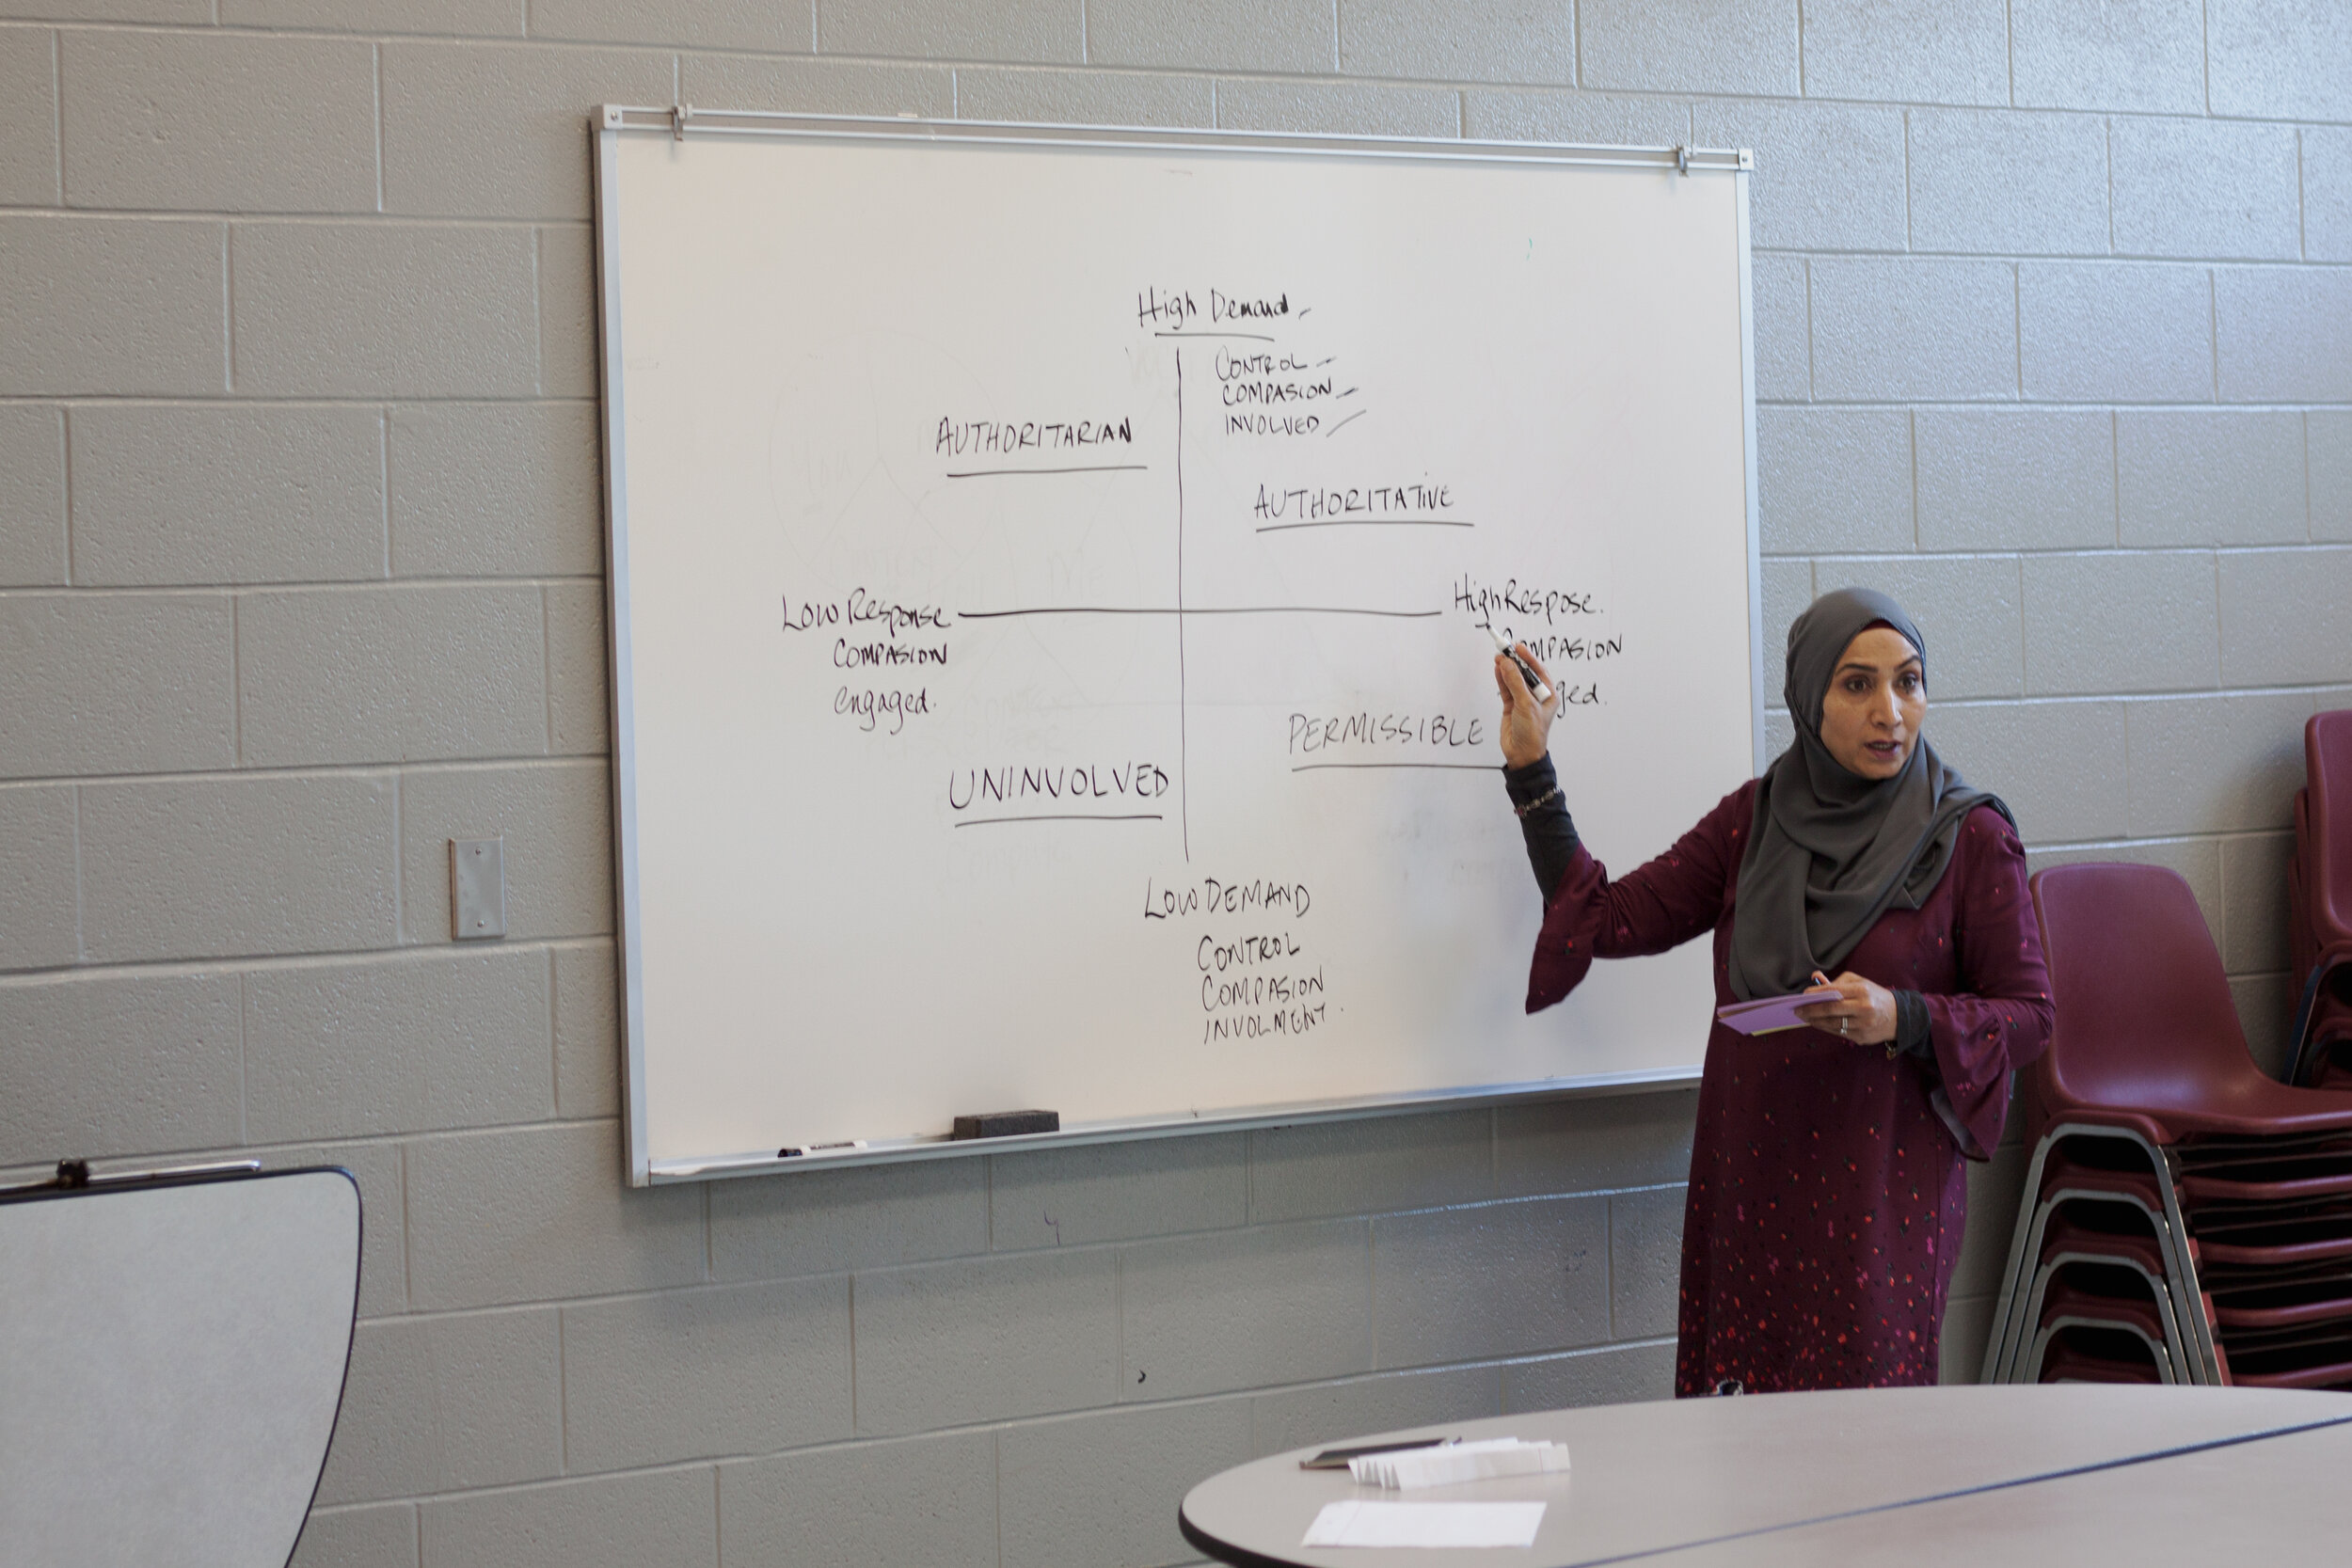 High Demand
CONTROL
COMPASION
INVOLVED
AUTHORITARIAN
AUTHORITATIVE
Low Response
COMPASION
engaged.
High Respose.
COMPASION
ged.
PERMISSIBLE
UNINVOLVED
LOW DEMAND
CONTROL
COMPASION
INVOLMENT.